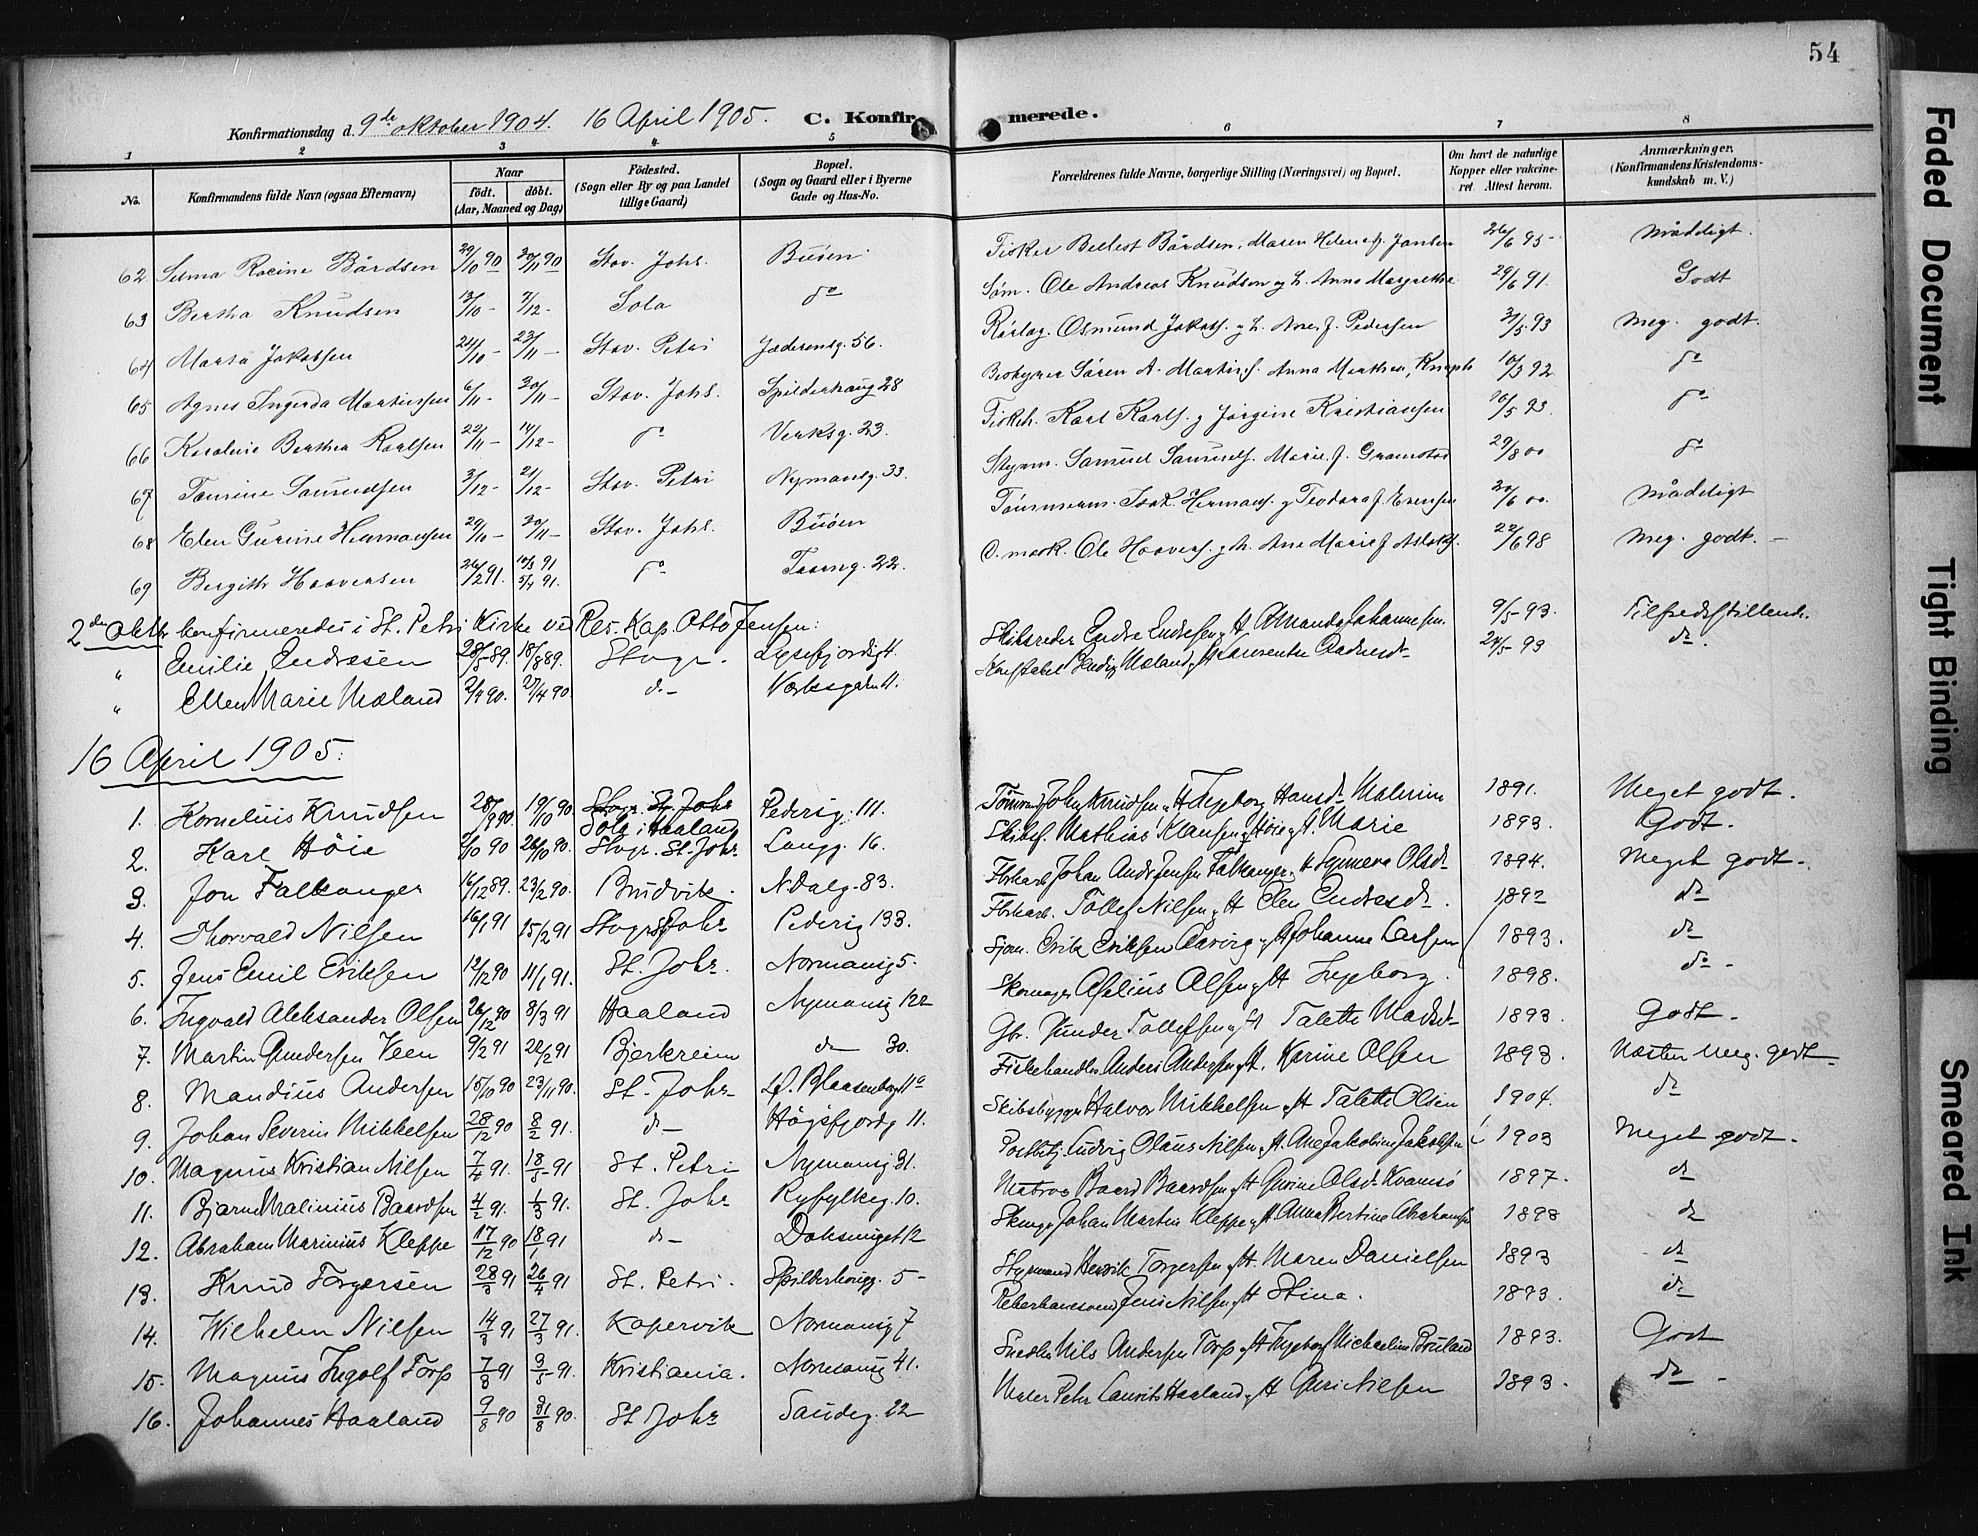 54
Konfirmationsdag d. 9de oktober 1904. 16 April 1905. C. Konfirmerede.
1 2 3 4 5 6 7 8
No. Konfirmandens fulde Navn (ogsaa Efternavn) Naar födt. döbt. (Aar, Maaned og Dag) Födested. (Sogn eller By og paa Landet tillige Gaard) Bopæl. (Sogn og Gaard eller i Byerne Gade og Hus-No. Forældrenes fulde Navne, borgerlige Stilling (Næringsvei) og Bopæl. Om havt de naturlige Kopper eller vakcineret Attest herom. Anmærkninger. (Konfirmandens Kristendomskundskab m. V.)
62 Selma Racine Bårdsen 29/10 90 30/11 90 Stav. Johs. Buöen Fisker Bårdsen, Maren Jansen 26/6 95 Måddeligt.
63 Bertha Knudsen 13/10 - 7/12 - Sola do Ole Andreas Knudsen og h. Anna Margrethe 29/6 91. Godt
64 Marta Jakobsen 24/10 - 23/11 - Stav. Petri Jæderensg. 56. Osmund Jakobs. og h. Ane f. Pedersen 3/5 93 Meg. godt.
65 Agnes Ingerda Martinsen 6/11 - 30/11 - Stav. Johs. Spilderhaug 28 Sören A. Martins. Anna 10/3 92 do
66 Karoline Berthea Karlsen 22/11 - 14/12 - do Verksg. 23. Fiskeh. Karl Karls. og Jörgine Kristiansen 20/5 93. do
67 Tomine Samuelsen 3/12 - 21/12 - Stav. Petri Nymansg. 33. Styrm. Samuel Samuels. Marie f. Gramstad 29/8 00 do
68 Elen Gurine Hermansen 29/10 - 30/11 - Stav. Johs. Buöen Tömmerm. Isak Hermans. og Teodora f. Evensen 20/6 00. Måddeligt
69 Bergithe Haaversen 26/12 91. 10/3 91 5/4 91. do Taarng. 22. Ole Haavers. og h. Ane Marie f. Aslaks. 22/6 98 Meg. godt. -
2den oktbr. konfirmeredes i St. Petri Kirke ved Res. Kap. Otto Jensen:
" Emilie Endresen 28/5 89. 18/8 89. Stvgr. Lysefjordsgt. Skibsreder Endre Endresen og H Amanda Johannesen 9/5 - 93. Tilfredsstillende.
" Ellen Marie Mæland 2/4 90. 27/4 90. do Værksgaten. Konstabel Mæland og H Laurentse 24/5 - 93 do.
16 April 1905:
1. Kornelius Knudsen 28/9 90 19/10 90 Stvgr. St. Johs Sola i Haaland Pedersg. 111. Tömrm. John Knudsen og H Ingeborg Hansdr Malerina 1891. Meget godt.
2. Karl Höie 2/10 90 26/10 90. Stvgr. St. Johs. Langg. 16. Skibsf. Mathias Klausen Höie og H. Marie 1893. Godt.
3. Jon Falkanger 16/12 89. 23/2 90. Brudvik. N. Dalg. 83. Johan Andr. Jensen Falkanger og H Synneva Olsdr 1894. Meget godt.
4. Thorvald Nilsen 16/1 91 15/2 91 Stvgr St Johs Pedersg 133. Tollef Nilsen og H Elen Endresdr. 1892 do
5. Jens Emil Eriksen 12/12 90 11/1 91. St. Johs. Normansg 5. Sjöm. Erik Eriksen og H Johanne Larsen 1893. do
6. Ingvald Aleksander Olsen 26/12 90 8/3 91 Haaland Nymansg 122 Skomager Olsen og H Ingeborg. 1898. do -
7. Martin Gundersen Veen 9/2 91 22/2 91 Bjerkreim do 30. Gbr. Gunder Tollefsen og H Talette Madsdr 1893 Godt.
8. Mandius Andersen 15/10 90 23/11 90. St. Johs Lf. Blaasenborg 11a Fiskehandler Anders Andersen og H. Karine Olsen 1893. Næsten meg. godt
9. Johan Severin Mikkelsen 28/12 90 8/2 91. do Högsfjordg 11. Skibsbygger Halvor Mikkelsen og H Talette Olsen 1904. do
10. Magnus Kristian Nilsen 7/4 91. 18/5 91 St. Petri Nymansg 31. Postbtj. Ludvig Olaus Nilsen og H. Ane Jakobine Jakobsen 1903 Meget godt.
11. Bjarne Malinius Baardsen 4/2 91. 1/3 91. St. Johs Ryfylkeg. 10. Matros Baard Baardsen og H Gurine Olsdr Kvamsö 1897. do
12. Abraham Marinius Kleppe 17/12 90 18/1 91 do Doksmuget 12 Johan Martin Kleppe og H. Anna Bertine Abrahamsen 1898 do
13. Knud Torgersen 28/3 91 26/4 91 St. Petri. Spilderhaugg. 5 - Styrmand Henrik Torgersen og H. Maren Danielsen 1893 do
14. Wilhelm Nilsen 14/3 91 27/3 91. Kopervik Normansg 7 Jens Nilsen og H Stina. 1893. do
15. Magnus Ingolf Torp 7/3 91 3/5 91. Kristiania. Normansg 41. Snedker Nils Andersen Torp og H Ingeborg Michaeline Bruland 1893. Godt
16. Johannes Haaland 9/8 90 31/8 90. St Johs Sandeg. 22 Maler Peter Laurits Haaland og H Guri Nilsen 1893. do -
Faded Document
Tight Binding
Smeared Ink